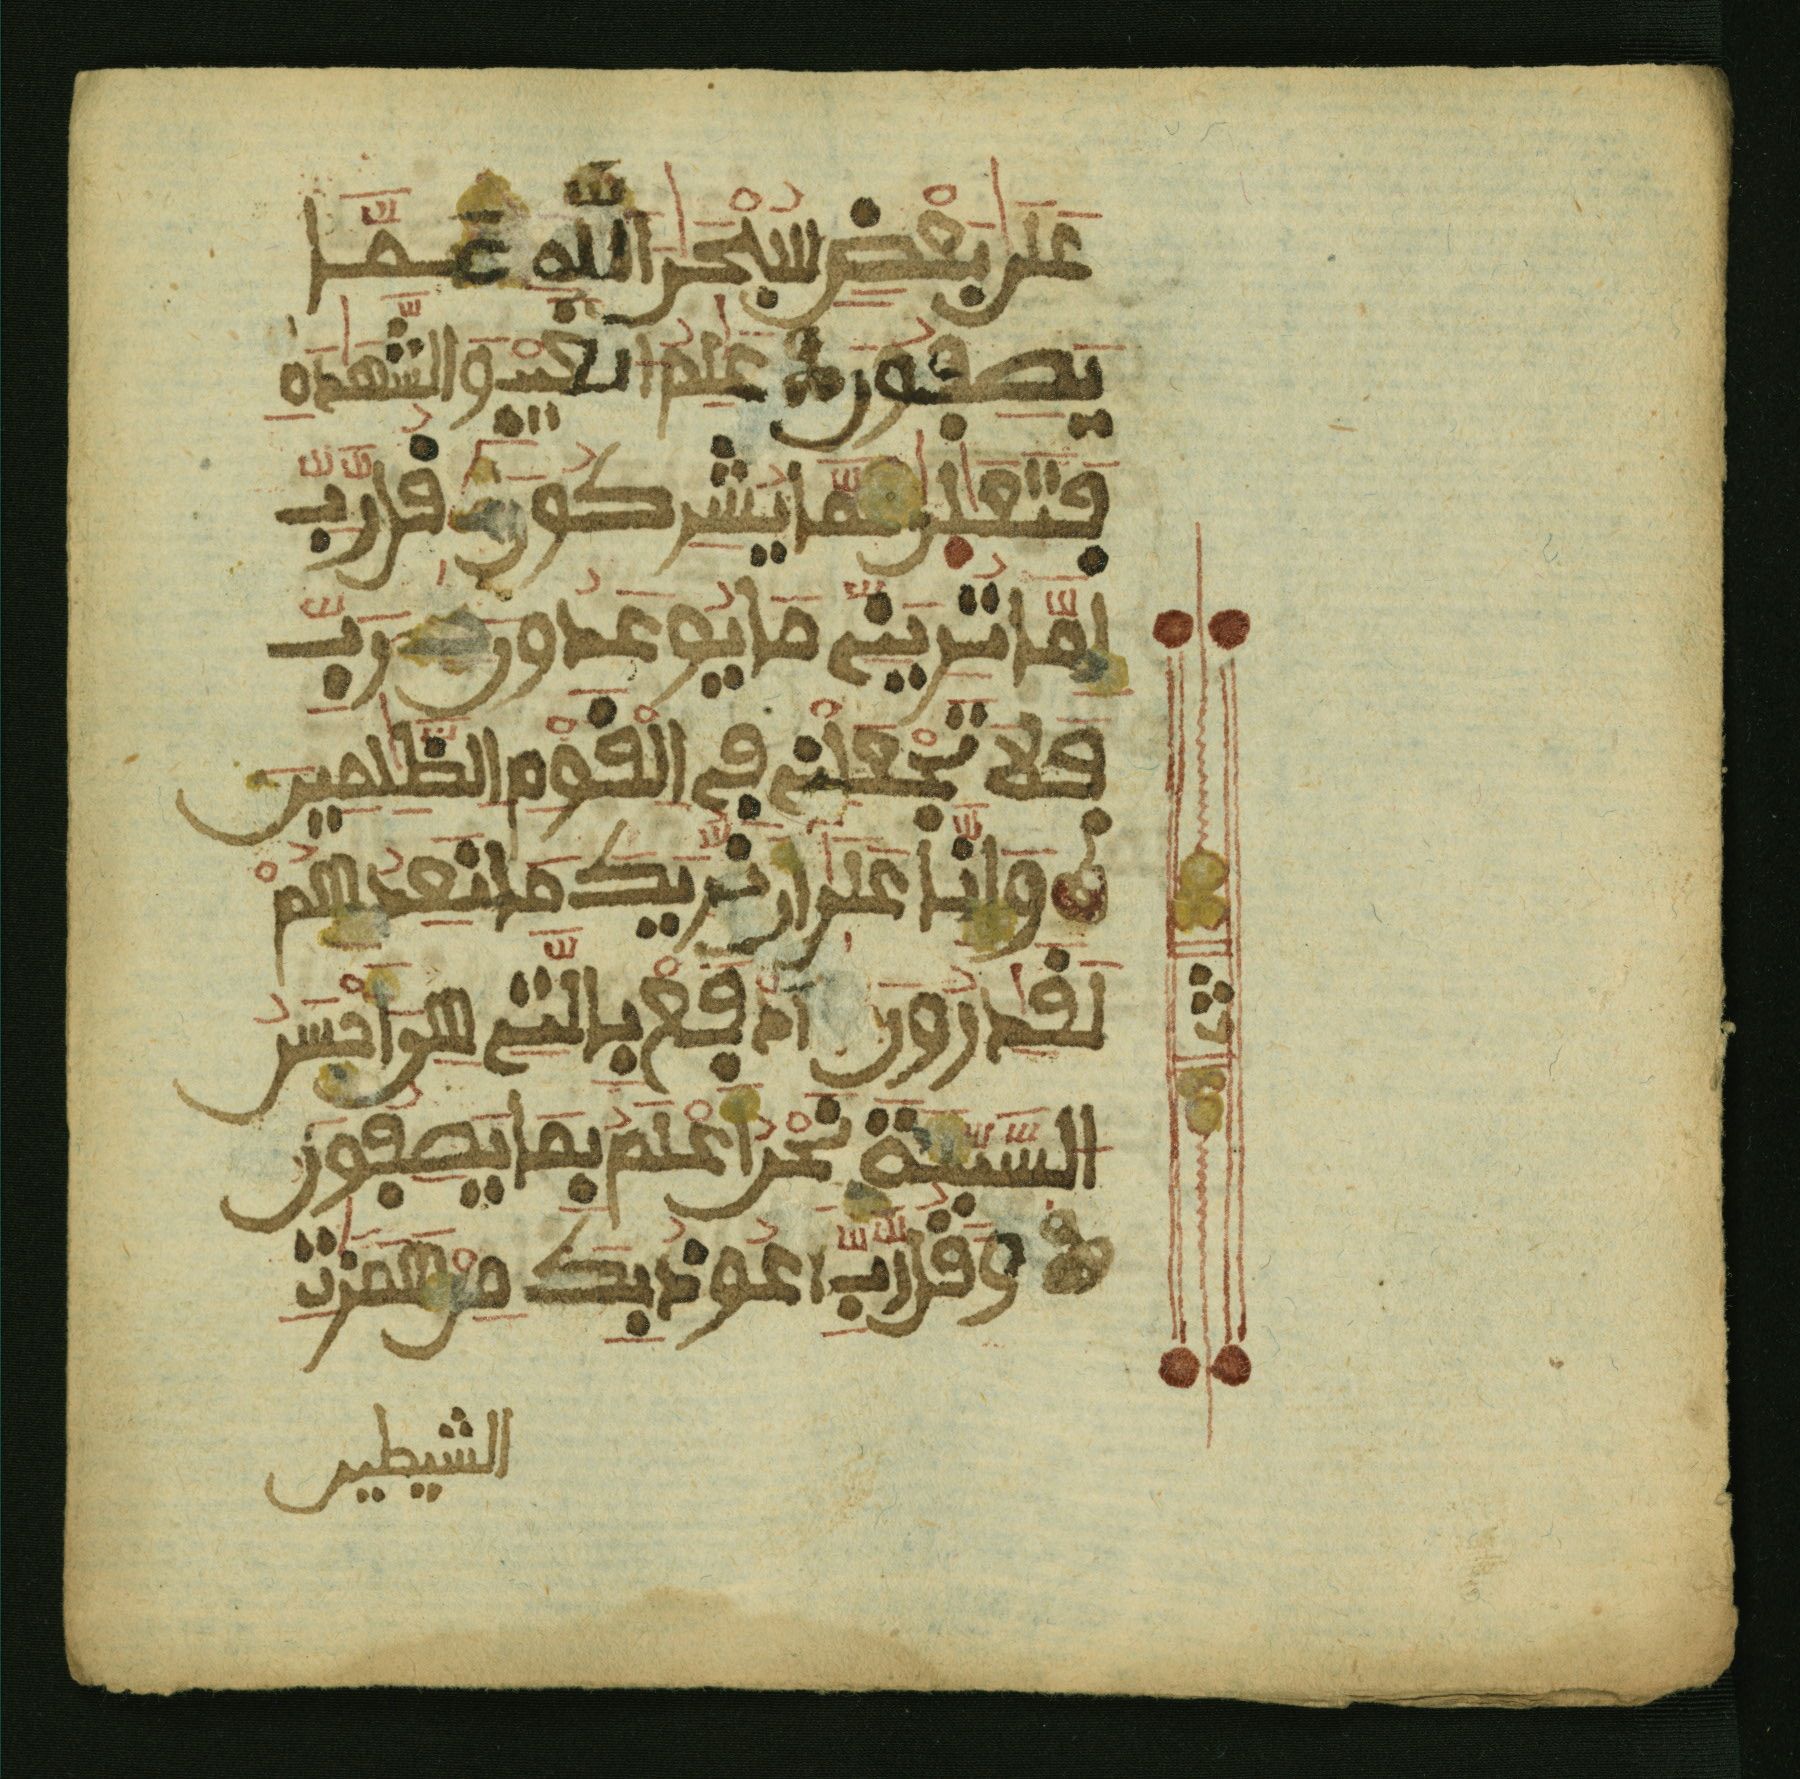 عَلَىٰ بَعْضٍ سُبْحَٰنَ اَللَّهِ عَمَّا
يَصِفُونَ عَٰلِمُ اُلْغَيْبِ وَالشَّهَٰدَةِ
فَتَعَٰلَىٰ عَمَّا يُشْرِكُونَ قُل رَّبِّ
إِمَّا تُرِيَنِّے مَا يُوعَدُونَ رَبِّ
فَلَا تَجْعَلْنِے فِے اِلْقَوْمِ الظَّٰلِمِينَ
وَإِنَّا عَلَىٰ أَن نُّرِيَكَ مَا نَعِدُهُمْ
لَقَٰدِرُونَ اَدْفَعْ بِالَّتِے هِىَ أَحْسَنُ
السَّيِّئَةَ نَحْنُ أَعْلَمُ بِمَا يَصِفُونَ
وَقُل رَّبِّ أَعُوذُ بِكَ مِنْ هَمَزَٰتِ
الشيطين
ث